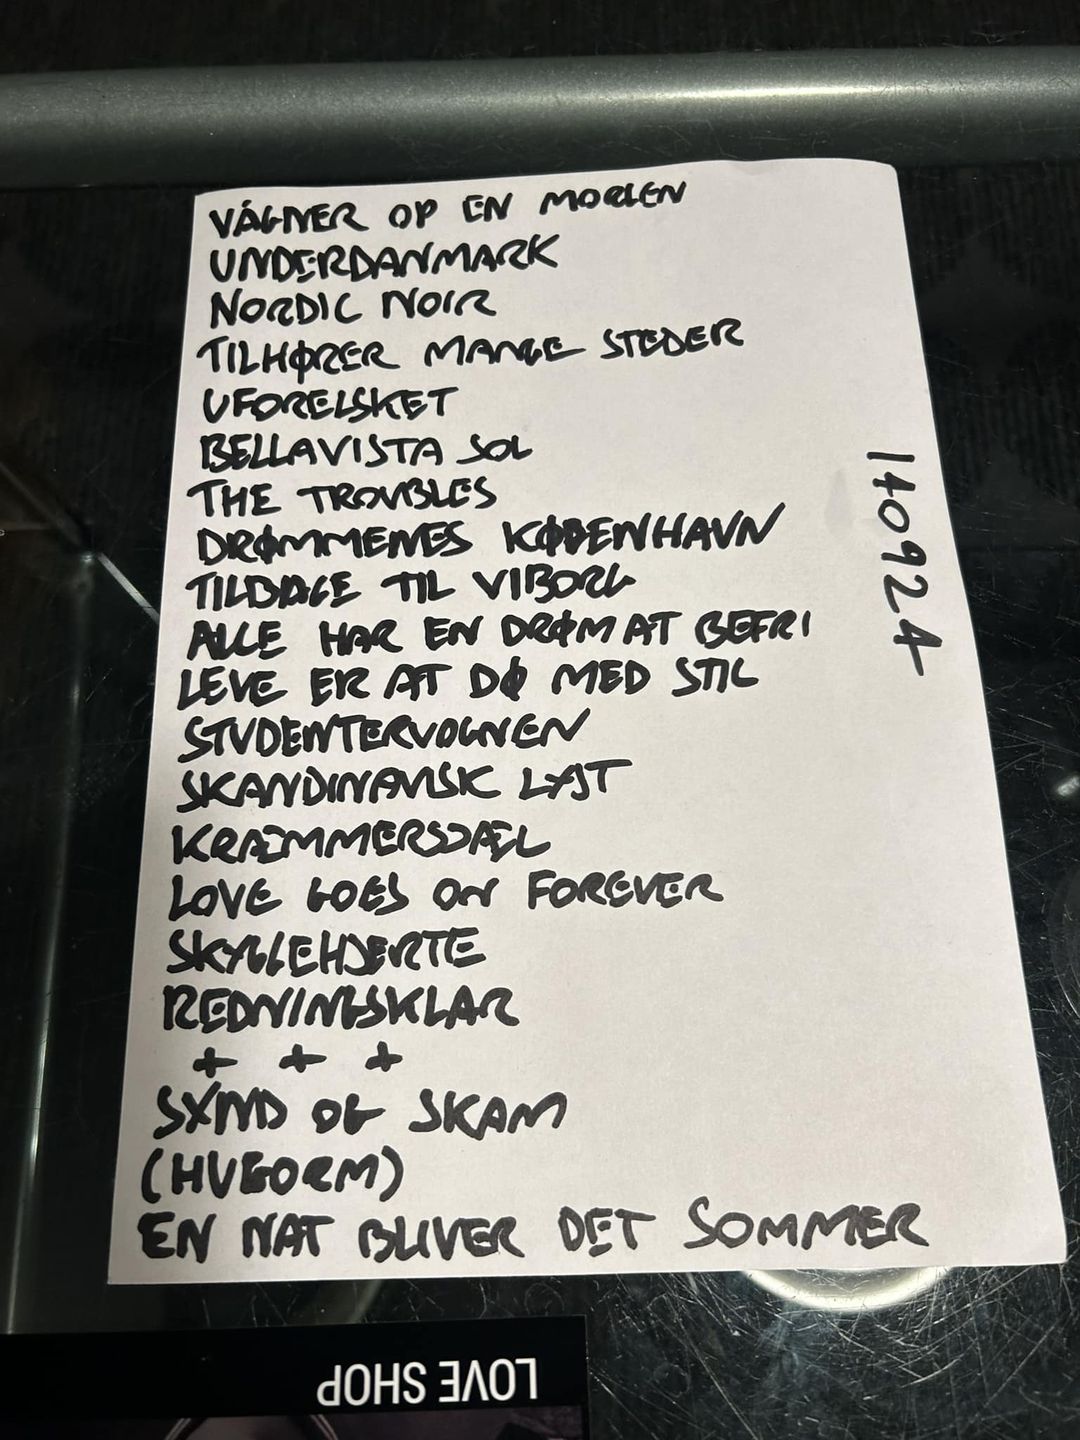 VÅGNER OP EN MORGEN
UNDERDANMARK
NORDIC NOIR
TILHØRER MANGE STEDER
UFORELSKET
BELLAVISTA SOL
THE TROUBLES
DRØMMENES KØBENHAVN
TILBAGE TIL VIBORG
ALLE HAR EN DRØM AT BEFRI
LEVE ER AT DØ MED STIL
STUDENTERVOGNEN
SKANDINAVISK LYST
KRÆMMERSJÆL
LOVE GOES ON FOREVER
SKYGGEHJERTE
REDNINGSKLAR
+ + +
SYND OG SKAM
(HUGORM)
EN NAT BLIVER DET SOMMER
140924
LOVE SHOP